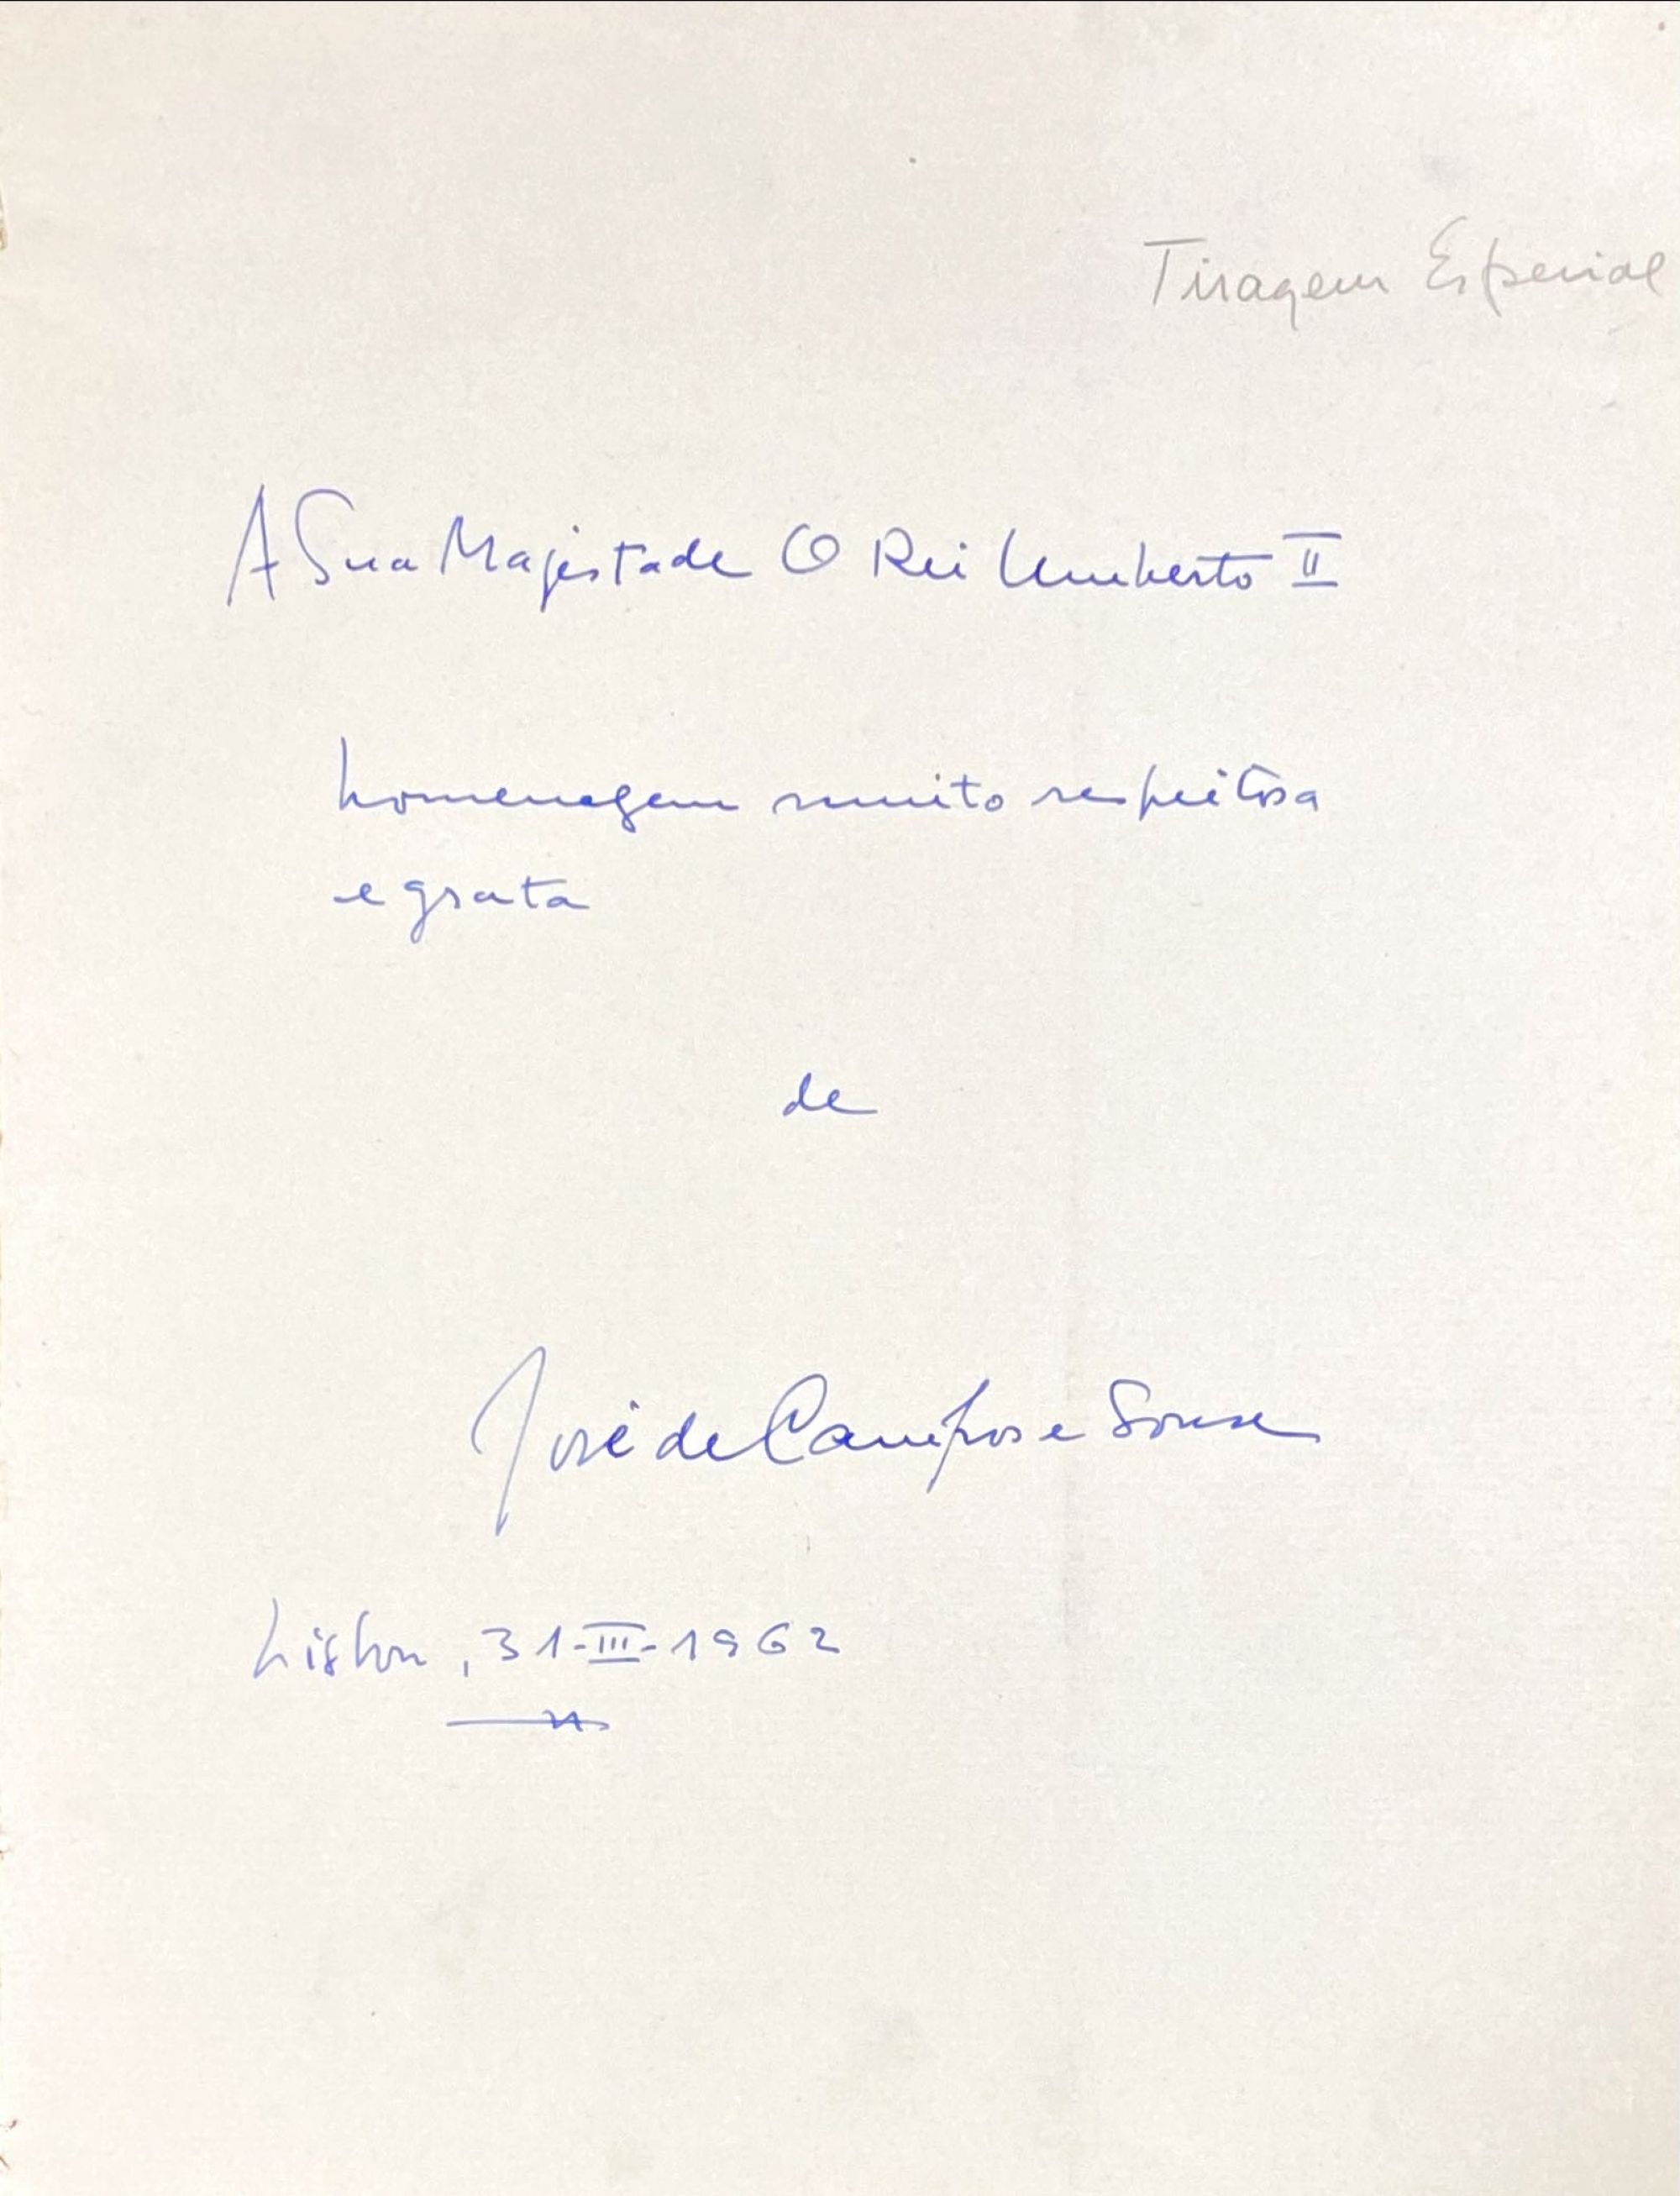 Tiragem Especial
A Sua Majestade O Rei Umberto II
homenagem muito respeitosa
e grata
de
José de Campos e Sousa
Lisboa, 31-III-1962